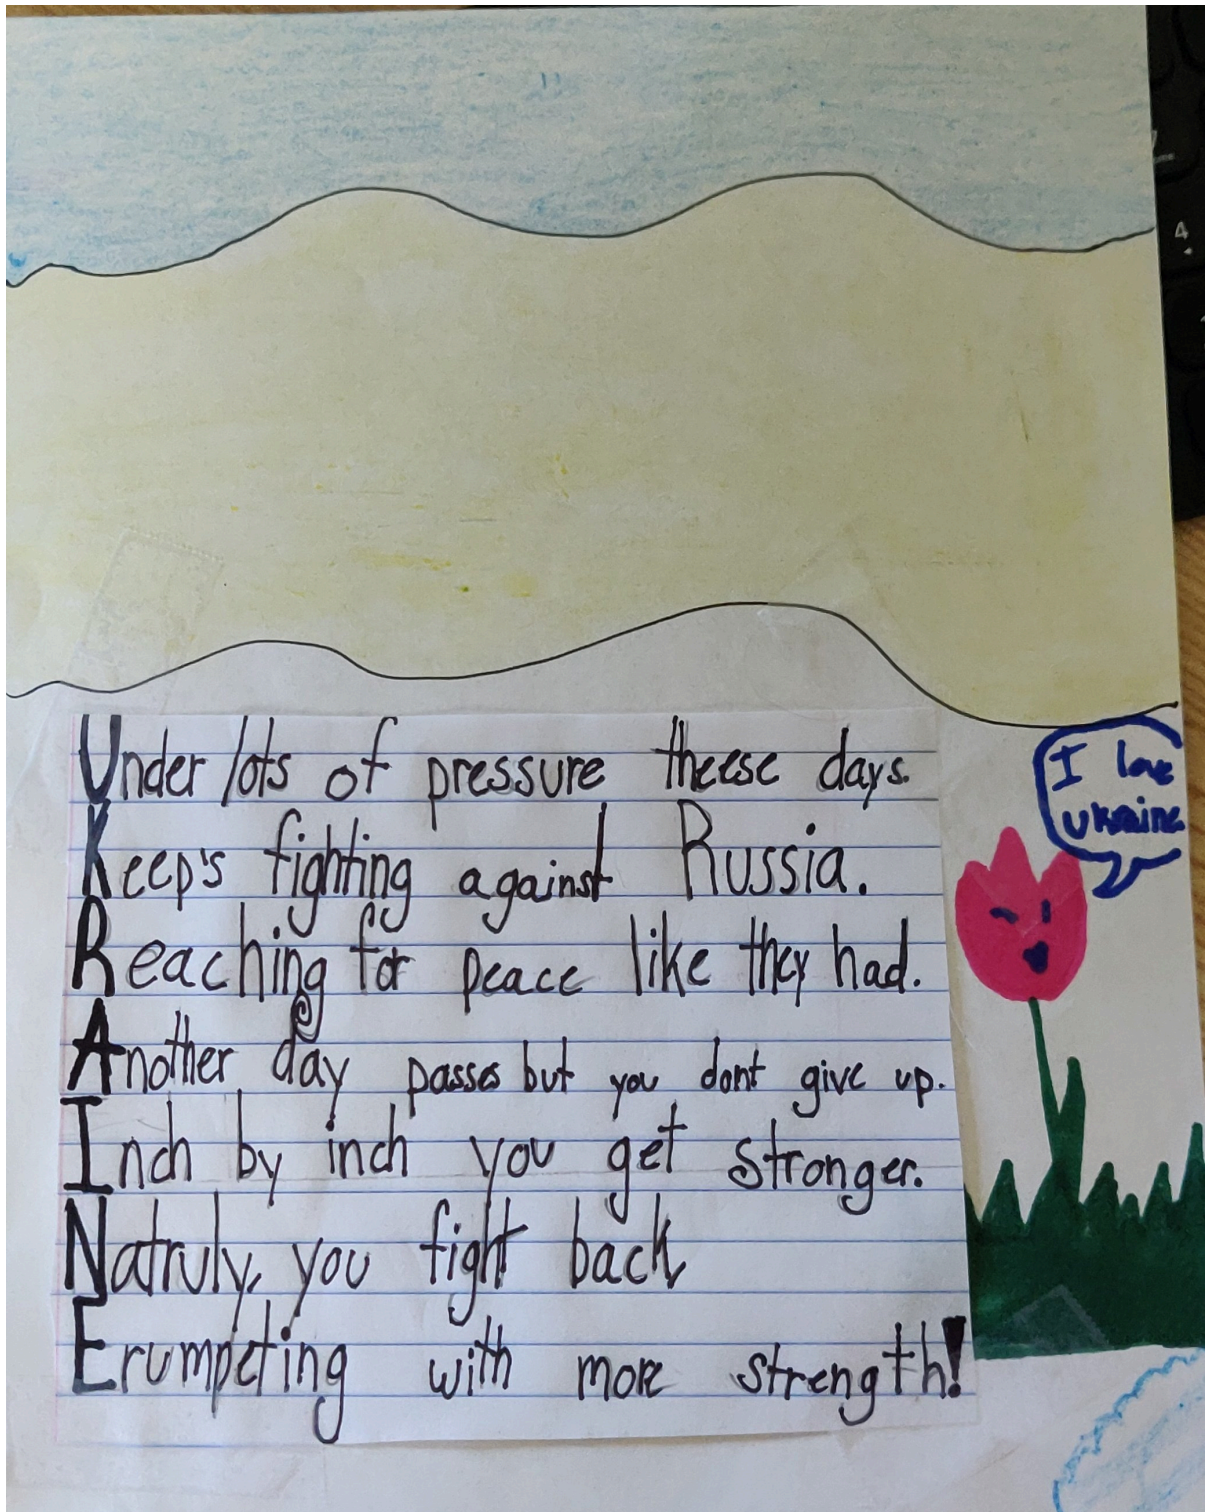 Under lots of pressure theese days.
Keep's fighting against Russia.
Reaching for peace like they had.
Another day passes but you dont give up.
Inch by inch you get stronger.
Natruly, you fight back
Erumpeting with more strength!
I love
ukraine
4